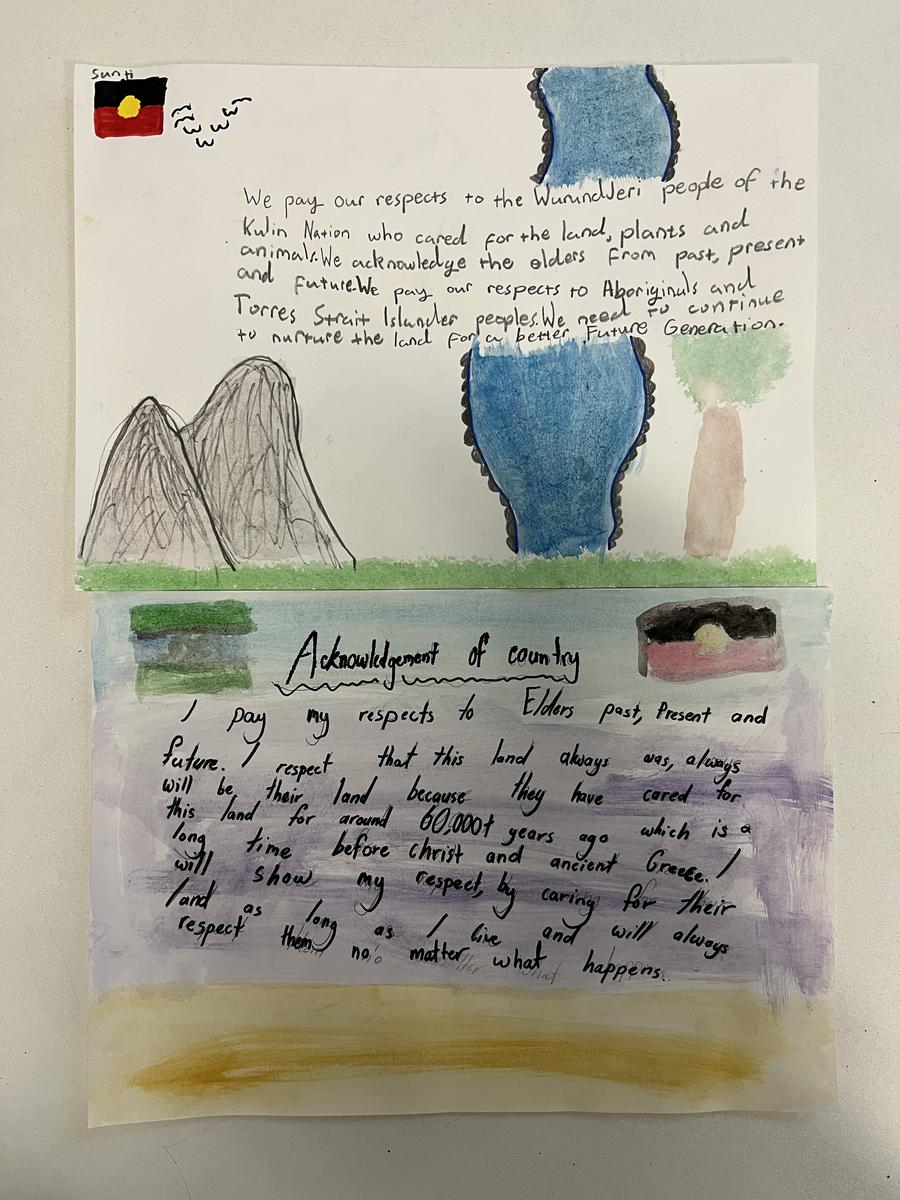 Sunji
We pay our respects to the Wurundjeri people of the
Kulin Nation who cared for the land, plants and
animals.We acknowledge the elders from past, present
and future.We pay our respects to Aboriginals and
Torres Strait Islander peoples.We need to continue
to nurture the land for a better Future Generation.
Acknowledgement of country
I pay my respects to Elders past, Present and
future. I respect that this land always was, always
will be, their land because they have cared for
this land for around 60,000+ years ago which is a
long time before christ and ancient Greece. I
will show my respect, by caring for their
land as long as I live and will always
respect them no matter what happens.